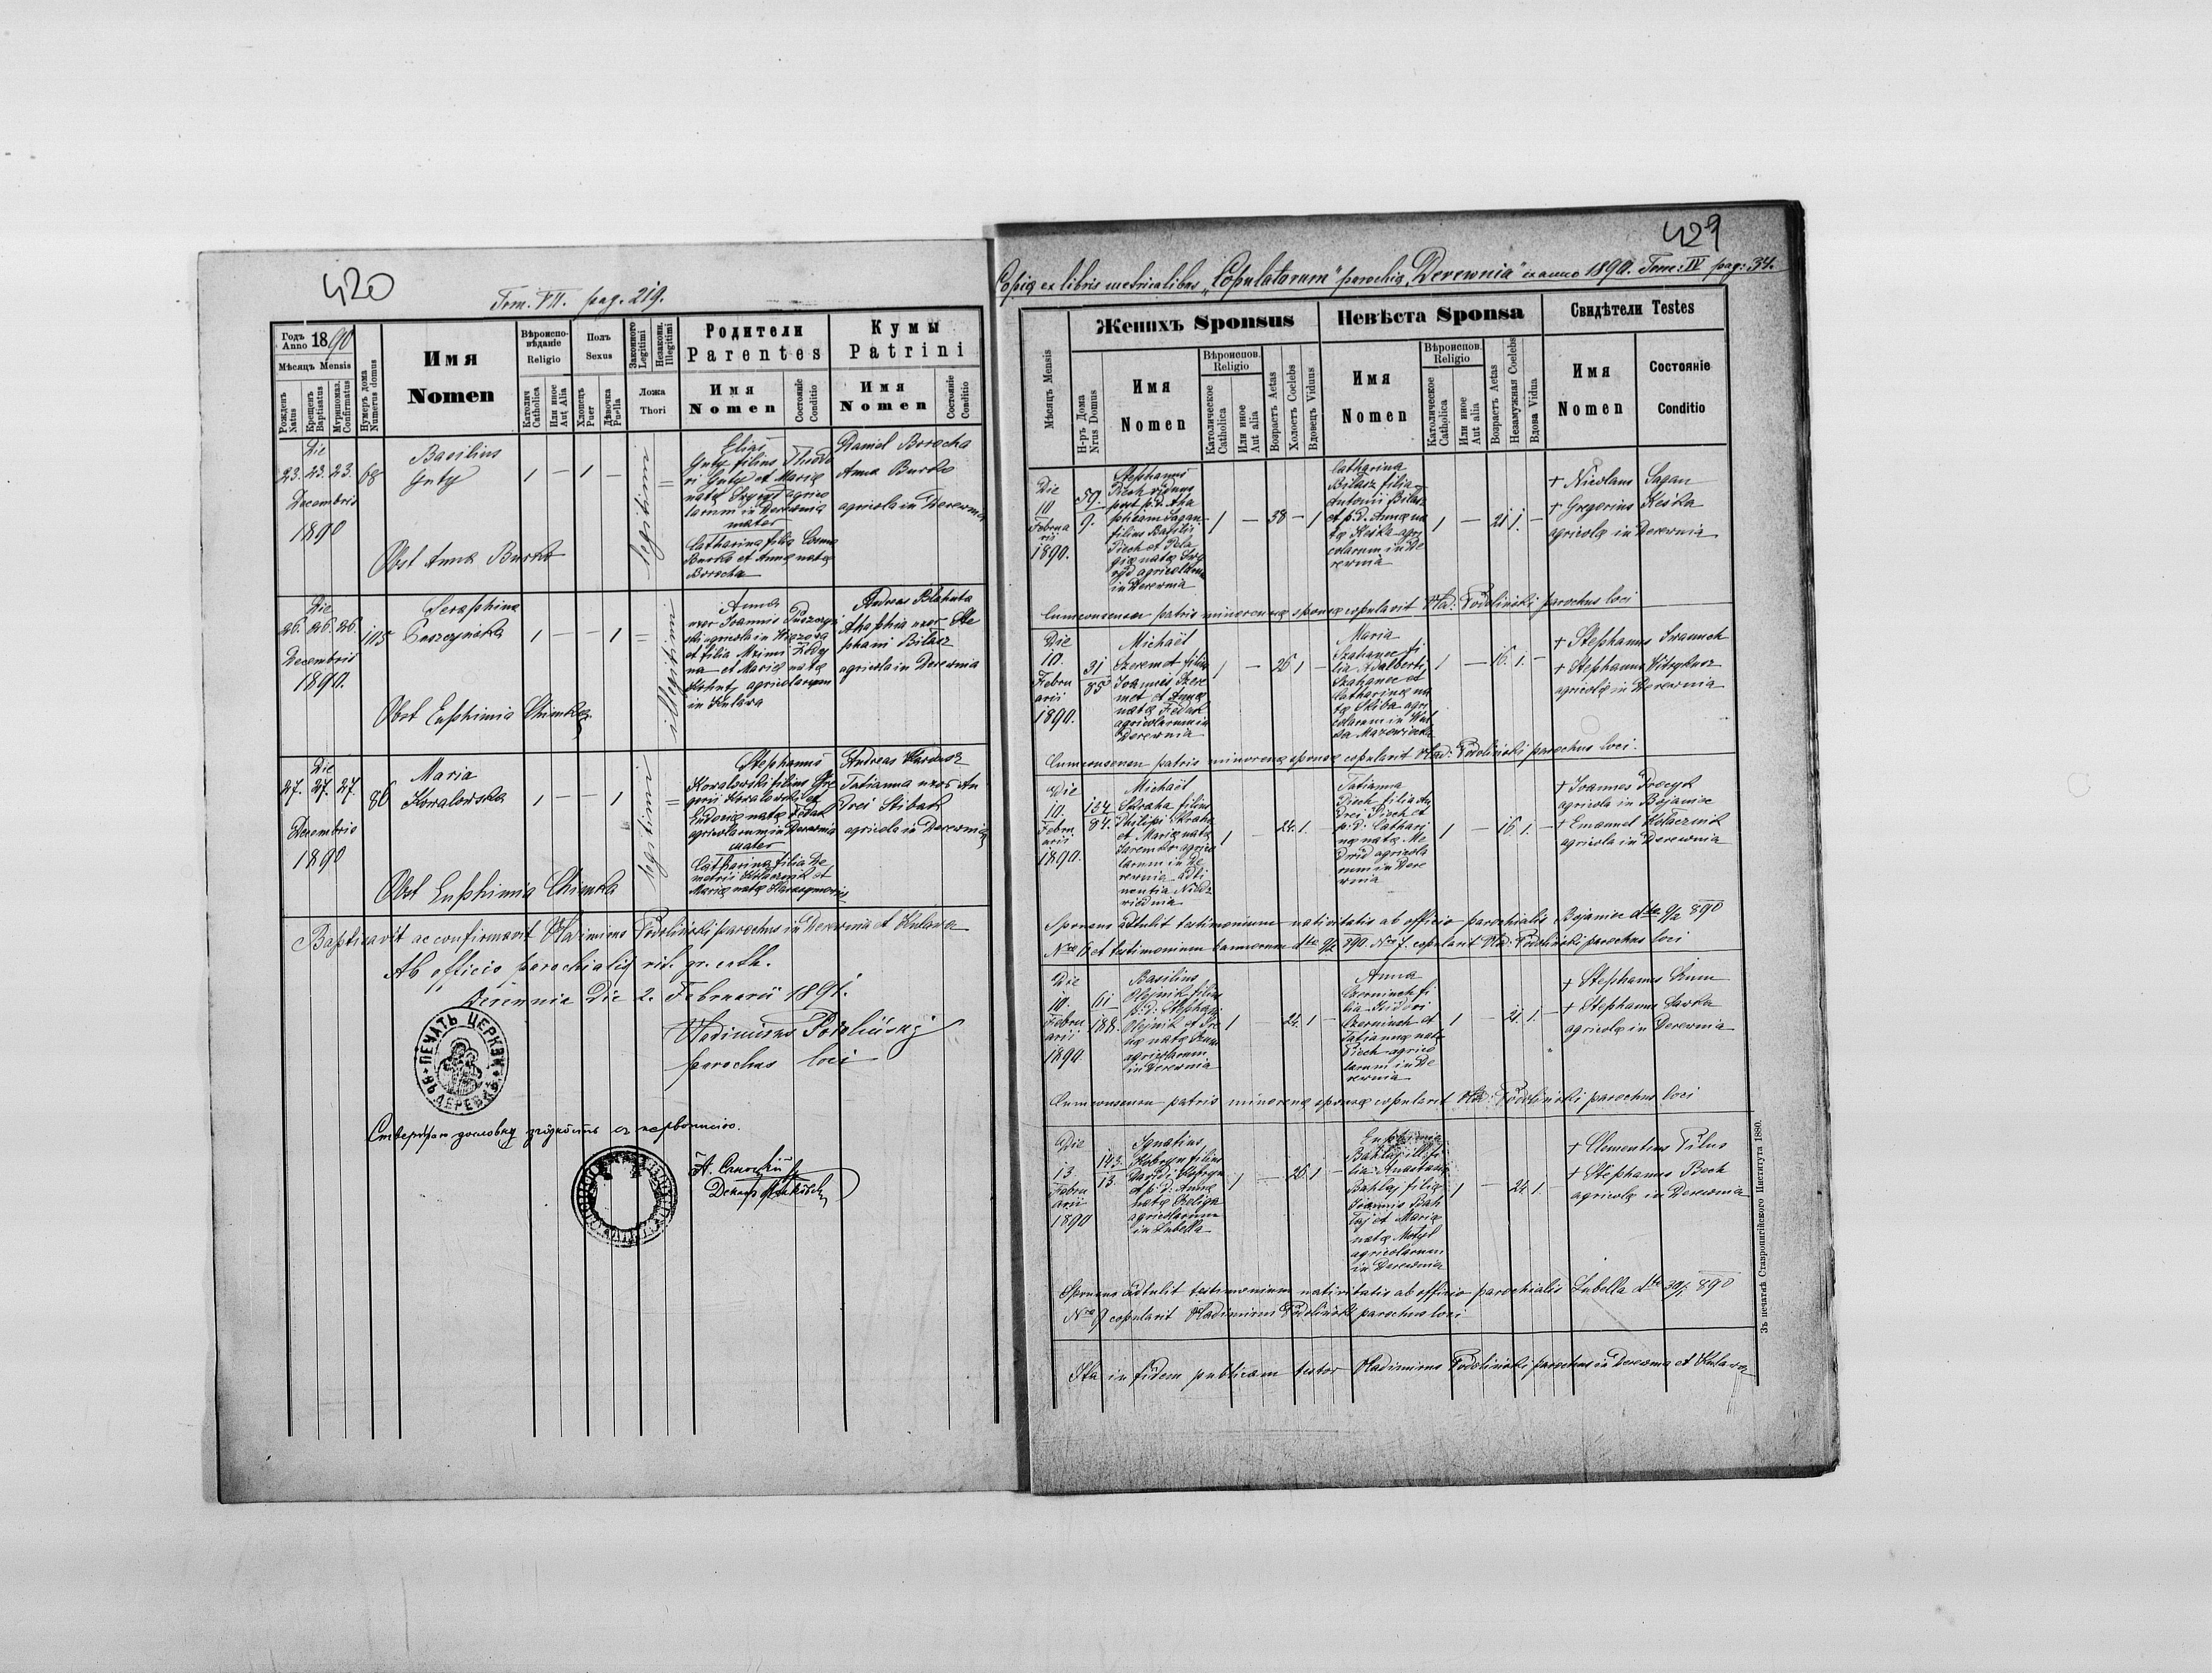 420
Tom. VII. pag. 219.
Годъ Anno 1890
Мѣсяцъ Mensis
Рожденъ Natus
Крещенъ Baptisatus
Мѵропомаз. Confirmatus
Нумеръ дома Numerus domus
Имя
Nomen
Вѣроисповѣданіе
Religio
Католич Catholica
Или иное Aut Alia
Полъ
Sexus
Хлопецъ Puer
Дѣвочка Puella
Законного Legitimi
Незаконн. Illegitimi
Ложа
Thori
Родители
Parentes
Имя
Nomen
Состояніе Conditio
Кумы
Patrini
Имя
Nomen
Состояніе Conditio
Die
23. 23. 23.
Decembris
1890
68
Basilius
Guty
1 — 1 —
legitimi
Elias
Guty filius Theodo
ri Guty et Mariæ
natæ agrico
larum in Derewnia
mater
Catharina filia Cosmæ
Burko et Annæ natæ
Borocha
Daniel Borocha
Anna Burko
agricola in Derewnia
Obst Anna Burko
Die
26. 26. 26.
Decembris
1890.
105
Seraphina
Puszczyńska
1 — — 1
illegitimi
Anna
uxor Joannis
agricola in
et filia
et Mariæ natæ
agricolarum
in Kulawa
Andreas Blahuta
Ahaphia uxor Ste
phani Bilasz
agricola in Derewnia
Obst Euphimia Chimka
Die
27. 27. 27.
Decembris
1890
86
Maria
Kowalowska
1 — — 1
legitimi
Stephanus
Kowalowski filius Gre
gorii Kowalowski et
Eudociæ natæ Fedak
agricolarum in Derewnia
mater
Catharina filia De
metrii Kolacznik et
Mariæ natæ
Andreas
Tatianna uxor An
drei
agricola in Derewnia
Obst Euphimia Chimka
Baptisavit ac confirmavit Wladimirus Podoliński parochus in Derewnia et Kulawa
Ab officio parochiali rit. gr. cath.
Derewnia die 2. Februarii 1891.
Wladimirus Podoliński
parochus loci
ПЕЧАТЬ ЦЕРКВИ ВЪ ДЕРЕВНѢ
429
Copia ex libris metricalibus „Copulatorum" parochiæ „Derewnia" ex anno 1890. Tom: IV pag: 34.
Мѣсяцъ Mensis
Женихъ Sponsus
Н-ръ Дома Nrus Domus
Имя
Nomen
Вѣроиспов.
Religio
Католическое Catholica
Или иное Aut alia
Возрастъ Aetas
Холостъ Coelebs
Вдовецъ Viduus
Невѣста Sponsa
Имя
Nomen
Вѣроиспов.
Religio
Католическое Catholica
Или иное Aut alia
Возрастъ Aetas
Незамужная Coelebs
Вдова Vidua
Свидѣтели Testes
Имя
Nomen
Состояніе
Conditio
Die
10
Februa
rii
1890.
59.
9.
Stephanus
Piech viduus
post p. d. Aha
phiam Sagan
filius Basilii
Piech et Pela
giæ natæ
agricolarum
in Derewnia
1 — 38 — 1
Catharina
Bilasz filia
Antonii Bilasz
et p. d. Annæ na
tæ Keska agri
colarum in De
rewnia
1 — 21 1. —
† Nicolaus Sagan
† Gregorius Keska
agricolæ in Derewnia
Cum consensu patris minorennæ sponsæ copulavit Wlad: Podoliński parochus loci
Die
10.
Febru
arii
1890.
31
85
Michaël
Szeremet filius
Joannis Szere
met et Annæ
natæ Fedak
agricolarum in
Derewnia
1 — 26 1 —
Maria
fi
lia Adalberti
et
Catharinæ na
tæ Skiba agri
colarum in
1 — 16. 1. —
† Stephanus Iwanuch
† Stephanus
agricolæ in Derewnia
Cum consensu patris minorennæ sponsæ copulavit Wlad: Podoliński parochus loci.
Die
10.
Febru
arii
1890.
134
84.
Michaël
filius
Philippi
et Mariæ natæ
Jaremko agrico
larum in De
rewnia
1 — 24. 1. —
Tatianna
Piech filia An
drei Piech et
p. d. Cathari
næ natæ
agricola
rum in Dere
wnia
1 — 16 1. —
† Joannes Procyk
agricola in Bojaniec
† Emanuel Kolacznik
agricola in Derewnia
Sponsus adtulit testimonium nativitatis ab officio parochialis Bojaniec dto 9/2 890
Nro 6 et testimonium bannorum dto 9/2 890 Nro 7. copulavit Wlad: Podoliński parochus loci
Die
10.
Febru
arii
1890
61
188.
Basilius
Olejnik filius
p. d. Stephani
Olejnik et
natæ
agricolarum
in Derewnia
1 — 24. 1 —
Anna
Czerniuch fi
lia Isidori
Czerniuch et
Tatiannæ natæ
Piech agrico
larum in De
rewnia
1 — 21. 1. —
† Stephanus
† Stephanus Sawka
agricolæ in Derewnia
Cum consensu patris minorennæ sponsæ copulavit Wlad: Podoliński parochus loci
Die
13.
Febru
arii
1890
143.
13.
Ignatius
Kobryn filius
Kobryn
et p. d. Annæ
natæ
agricolarum
in Lubella
1 — 26 1 —
Euphimia
Bahlaj ill. fi
lia Anastasiæ
Bahlaj filiæ
Joannis Bah
laj et Mariæ
natæ Motyl
agricolarum
in Derewnia
1 — 24 1. —
† Clementius Pilus
† Stephanus Bech
agricolæ in Derewnia
Sponsus adtulit testimonium nativitatis ab officio parochialis Lubella dto 30/1 890
Nro 9 copulavit Wladimirus Podoliński parochus loci
Ita in fidem publicam testor Wladimirus Podoliński parochus in Derewnia et Kulawa
Зъ печатнѣ Ставропигійского Института 1880.